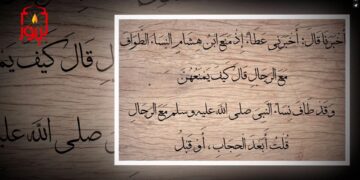 أخبرنا قال: أخبرني عطاء: إذ منع ابن هشام النساء الطواف
مع الرجال قال كيف يمنعهن
وقد طاف نساء النبي صلى الله عليه وسلم مع الرجال
قلت أبعد الحجاب، أو قبل